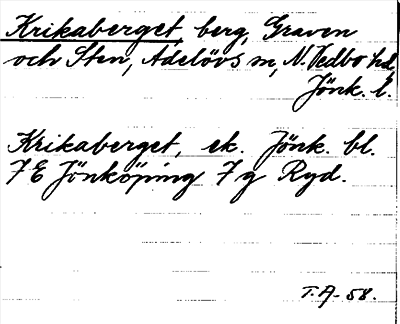 Krikaberget, berg, Graven
och Sten, Adelövs sn, N. Vedbo hd,
Jönk. l.
Krikaberget, ek. Jönk. bl.
7E Jönköping 7 g Ryd.
T.A. 58.